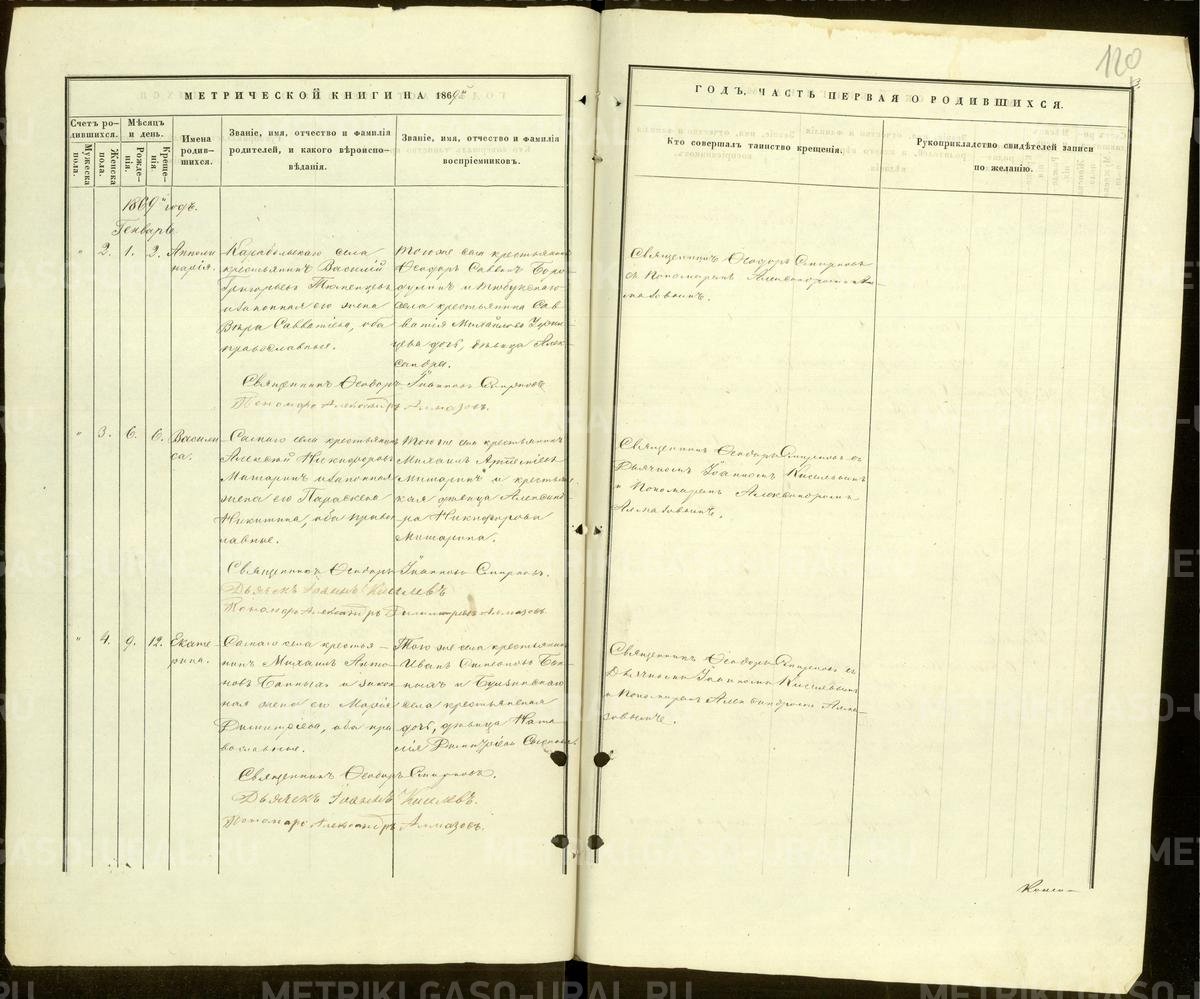 120
МЕТРИЧЕСКОЙ КНИГИ НА 1869й
ГОДЪ, ЧАСТЬ ПЕРВАЯ О РОДИВШИХСЯ.
Счетъ родившихся.
Мужеска пола.
Женска пола.
Мѣсяцъ и день.
Рожденія.
Крещенія.
Имена родившихся.
Званіе, имя, отчество и фамилія родителей, и какого вѣроисповѣданія.
Званіе, имя, отчество и фамилія воспріемниковъ.
Кто совершалъ таинство крещенія.
Рукоприкладство свидѣтелей записи по желанію.
1869й годъ.
Генварь
" 2. 1. 2. Апполинарія.
Карабольскаго села
крестьянинъ Василій
Григорьевъ
и законная его жена
Вѣра Савватіева, оба
православные.
Того же села крестьянинъ
Ѳеодоръ Саввинъ Бородулинъ и
села крестьянина Савватія Михайлова
дочь, дѣвица Александра.
Священникъ Ѳеодоръ Смирновъ
съ Пономаремъ Александромъ Алмазовымъ.
Священникъ Ѳеодоръ Іоанновъ Смирновъ
Пономарь Александръ Алмазовъ.
" 3. 6. 6. Василиса.
Сегоже села крестьянинъ
Алексѣй Никифоровъ
Мишаринъ и законная
жена его Параскева
Никитина, оба православные.
Того же села крестьянинъ
Михаилъ Артемьевъ
Мишаринъ и крестьянская дѣвица Александра Никифорова
Мишарина.
Священникъ Ѳеодоръ Смирновъ съ
Дьячкомъ Іоанномъ Киселевымъ
и Пономаремъ Александромъ
Алмазовымъ.
Священникъ Ѳеодоръ Іоанновъ Смирновъ.
Дьячекъ Іоаннъ Киселевъ
Пономарь Александръ Димитріевъ Алмазовъ
" 4. 9. 12. Екатерина.
села крестьянинъ Михаилъ Антоновъ Банныхъ и законная жена его Марія
Димитріева, оба православные.
Того же села крестьянинъ
Иванъ Банныхъ и
села крестьянская
дочь, дѣвица Наталія Димитріева
Священникъ Ѳеодоръ Смирновъ съ
Дьячкомъ Іоанномъ Киселевымъ
и Пономаремъ Александромъ Алмазовымъ.
Священникъ Ѳеодоръ Смирновъ.
Дьячекъ Іоаннъ Киселевъ.
Пономарь Александръ Алмазовъ.
METRIKI.GASO-URAL.RU